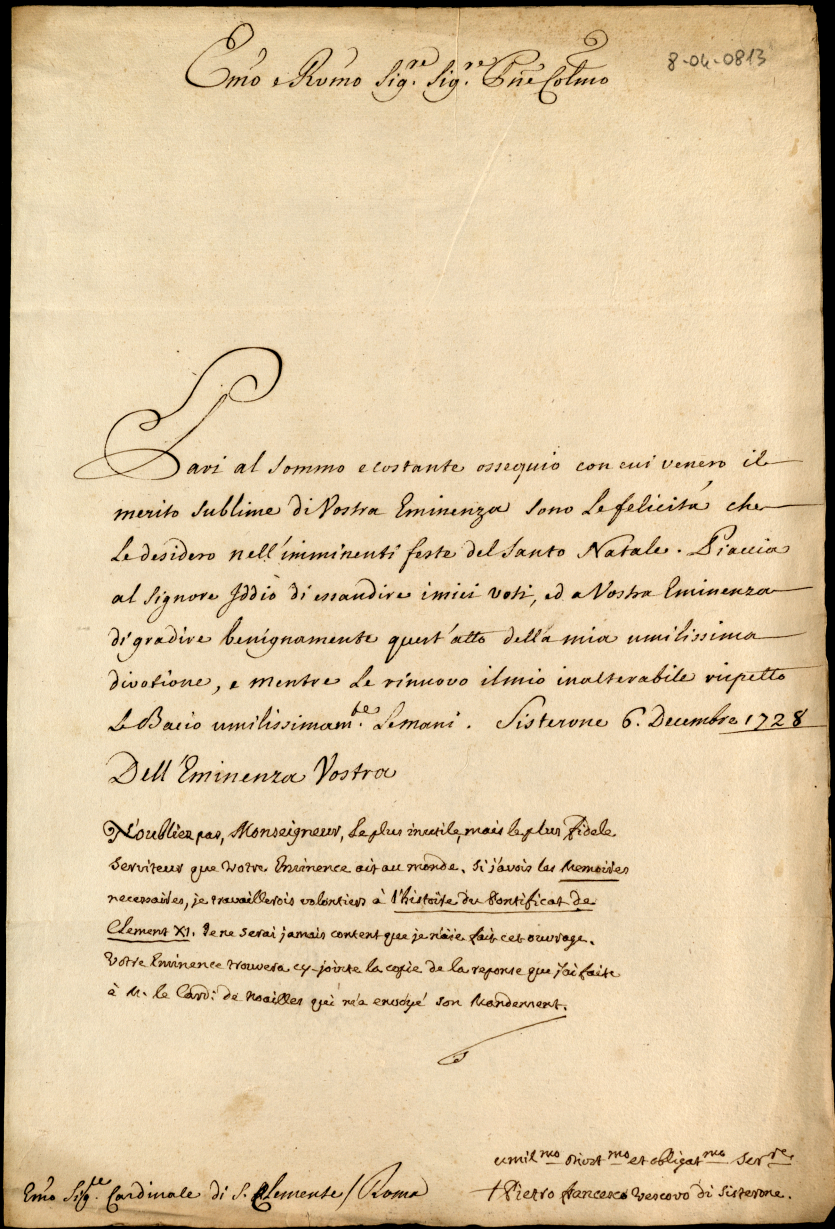 Emo e Rvmo Sig.re Sig.re Pne Colmo
8-04-0813
Pari al sommo e costante ossequio con cui venero il
merito sublime di Vostra Eminenza sono le felicità che
le desidero nell'imminenti feste del Santo Natale. Piaccia
al Signore Iddio di essaudire i miei voti, ed a Vostra Eminenza
di gradire benignamente quest'atto della mia umilissima
divotione, e mentre le rinuovo il mio inalterabile rispetto
le Bacio umilissimam.te le mani. Sisterone 6. Decembre 1728
Dell'Eminenza Vostra
N'oubliez pas, Monseigneur, le plus inutile, mais le plus fidele
serviteur que Votre Eminence ait au monde. Si j'avois les memoires
necessaires, je travaillerois volontiers à l'histoire du Pontificat de
Clement XI. Je ne serai jamais content que je n'aie fait cet ouvrage.
Votre Eminence trouvera cy-jointe la copie de la reponse que j'ai faite
à M. le Card: de Noailles qui m'a envoyé son Mandement.
umil.mo divot.mo et obligat.mo ser.re
Emo Sig.re Cardinale di S. Clemente / Roma
+ Pietro francesco vescovo di Sisterone.